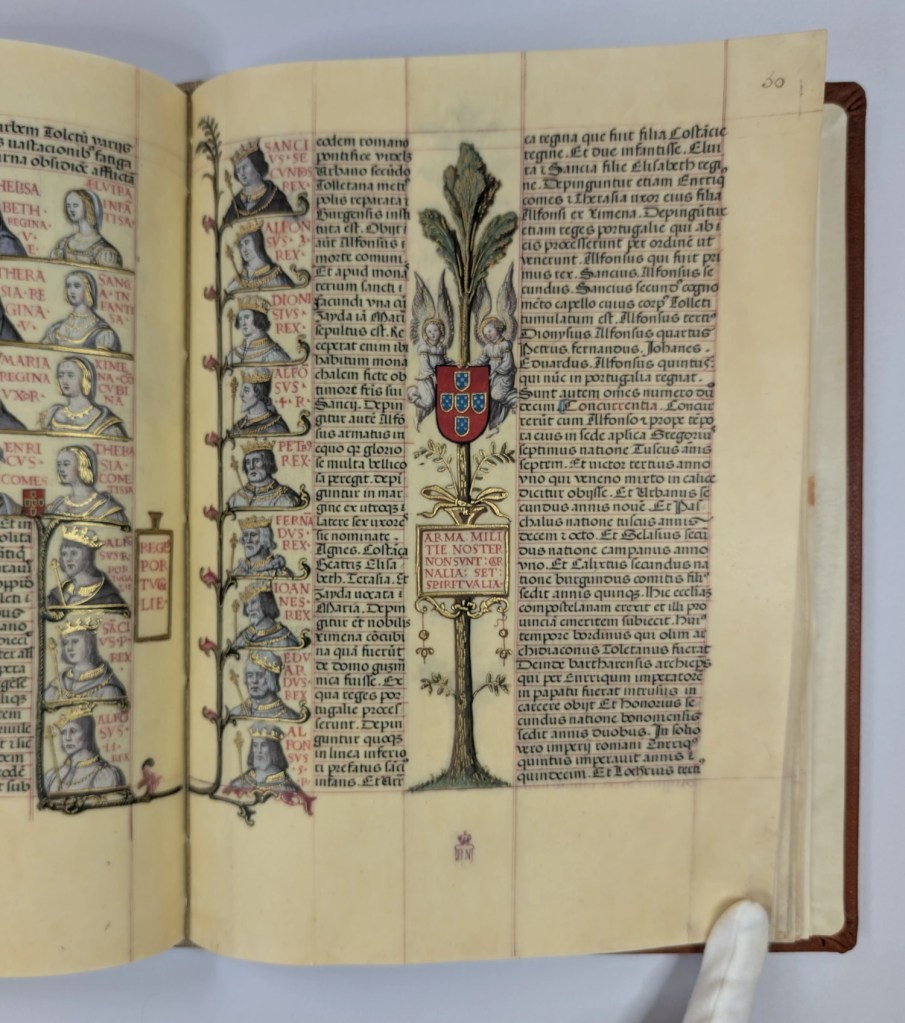 urbem Toletũ varijs
uastacionib⁹ fatiga
urna obsidiõe afflicta
HELISA
BETH·
REGINA
·V·
ELVIRA
INFÃ
TISSA·
THERA
SIA·RE
GINA·
·V·
SANC
A·IN
FANTI
SA·
MARIA
REGINA
VXOR·
XIME
NA·CÕ
CVBI
NA
ENRI
CVS·
COMES
THERA
SIA·
COME
TISSA
REGES
POR
TVGA
LIE·
SÃCI
VS·P·
REX
ALFO
SVS·
·II·
REX
50
SANCI
VS·SE
CVNDVS
REX·
ALFON
SVS·3·
REX·
DIONI
SIVS·
REX·
ALFO
SVS·
·4·R·
PETRO
REX·
FERNÃ
DVS·
REX·
IOAN
NES·
REX·
EDV
AR
DVS·
REX
AL
FON
SVS
·5·
eodem romano
pontifice videlȝ
Urbano secũdo
Tolletana metro
polis reparata ⁊
Burgensis insti
tuta est. Obijt
aũt Alfonsus i
morte comuni.
Et apud mona
terium sancti
facundi vna cũ
Zayda iã Maria
sepultus est. Re
ceperat enim ibi
habitum mona
chalem ficte ob
timorẽ fr̃is sui
Sancij. Depin
gitur autẽ Alfõ
sus armatus in
equo qr̃ glorio
se multa bellico
sa peregit. depi
guntur in mar
gine ex utroqȝ
latere sex uxores
sic nominate·
Agnes. Costãcia
Beatrix Elisa
beth. Terasia. Et
Zayda uocata
Maria. Depin
gitur et nobilis
Ximena cõcubi
na quã fuerũt
de domo guzmi
nica fuisse. Ex
qua reges por
tugalie proces
serunt. Depin
guntur quoqȝ
in linea inferio
ri prefatus sãci
infans. Et
ARMA MILI
TIE NOSTER
NON SVNT: CAR
NALIA: SET:
SPIRITVALIA·
ca regina que fuit filia Costãcie
regine. Et due infantisse. Elui
ra ⁊ Sancia filie Elisabeth regi
ne. Depinguntur etiam Enriq⁹
comes ⁊ Therasia uxor eius filia
Alfonsi ex Ximena. Depingũtur
etiam reges portugalie qui ab i
cis processerunt per ordinẽ ut
venerunt. Alfonsus qui fuit pri
mus rex. Sancius. Alfonsus se
cundus. Sancius secund⁹ cogno
mẽto capello cuius corp⁹ Tolleti
tumulatum est. Alfonsus terti⁹
Dionysius. Alfonsus quartus
Petrus. fernandus. Johanes·
Eduardus. Alfonsus quintus
qui nũc in portugalia regnat.
Sunt autem omes numero du
decim. Concurrentia. Concur
rerũt cum Alfonso ⁊ prope tẽpo
ra eius in sede aplica Gregorius
septimus natione Tuscus annis
septem. Et victor tertius anno
vno qui veneno mixto in calice
dicitur obijsse. Et Urbanus se
cundus annis nouẽ. Et Pas
chalus natione tuscus annis
decem ⁊ octo. Et Gelasius secũ
dus natione campanus anno
vno. Et Calixtus secundus na
tione burgundus comitis fili⁹
sedit annis quinqȝ. Hic eccliaȝ
compostelanam erexit et illi pro
uinciã emeritem subiecit. Hui⁹
tempore bordinus qui olim ar
chidiaconus Toletanus fuerat
Deinde bacharensis archiep̃s
qui per Enriqum imperatorẽ
in papatu fuerat intrusus in
carcere obijt Et Honorius se
cundus natione bononiensis
sedit annis duobus. In solio
vero imperij romani Enriq⁹
quintus imperauit annis
quindecim. Et Lotherius terti
BN